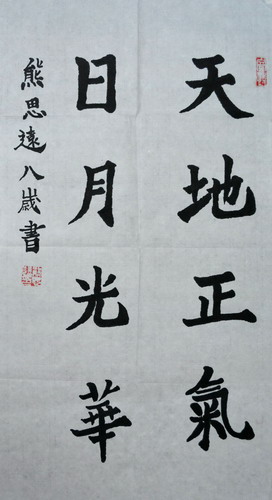 天地正氣
日月光華
熊思遠八歲書